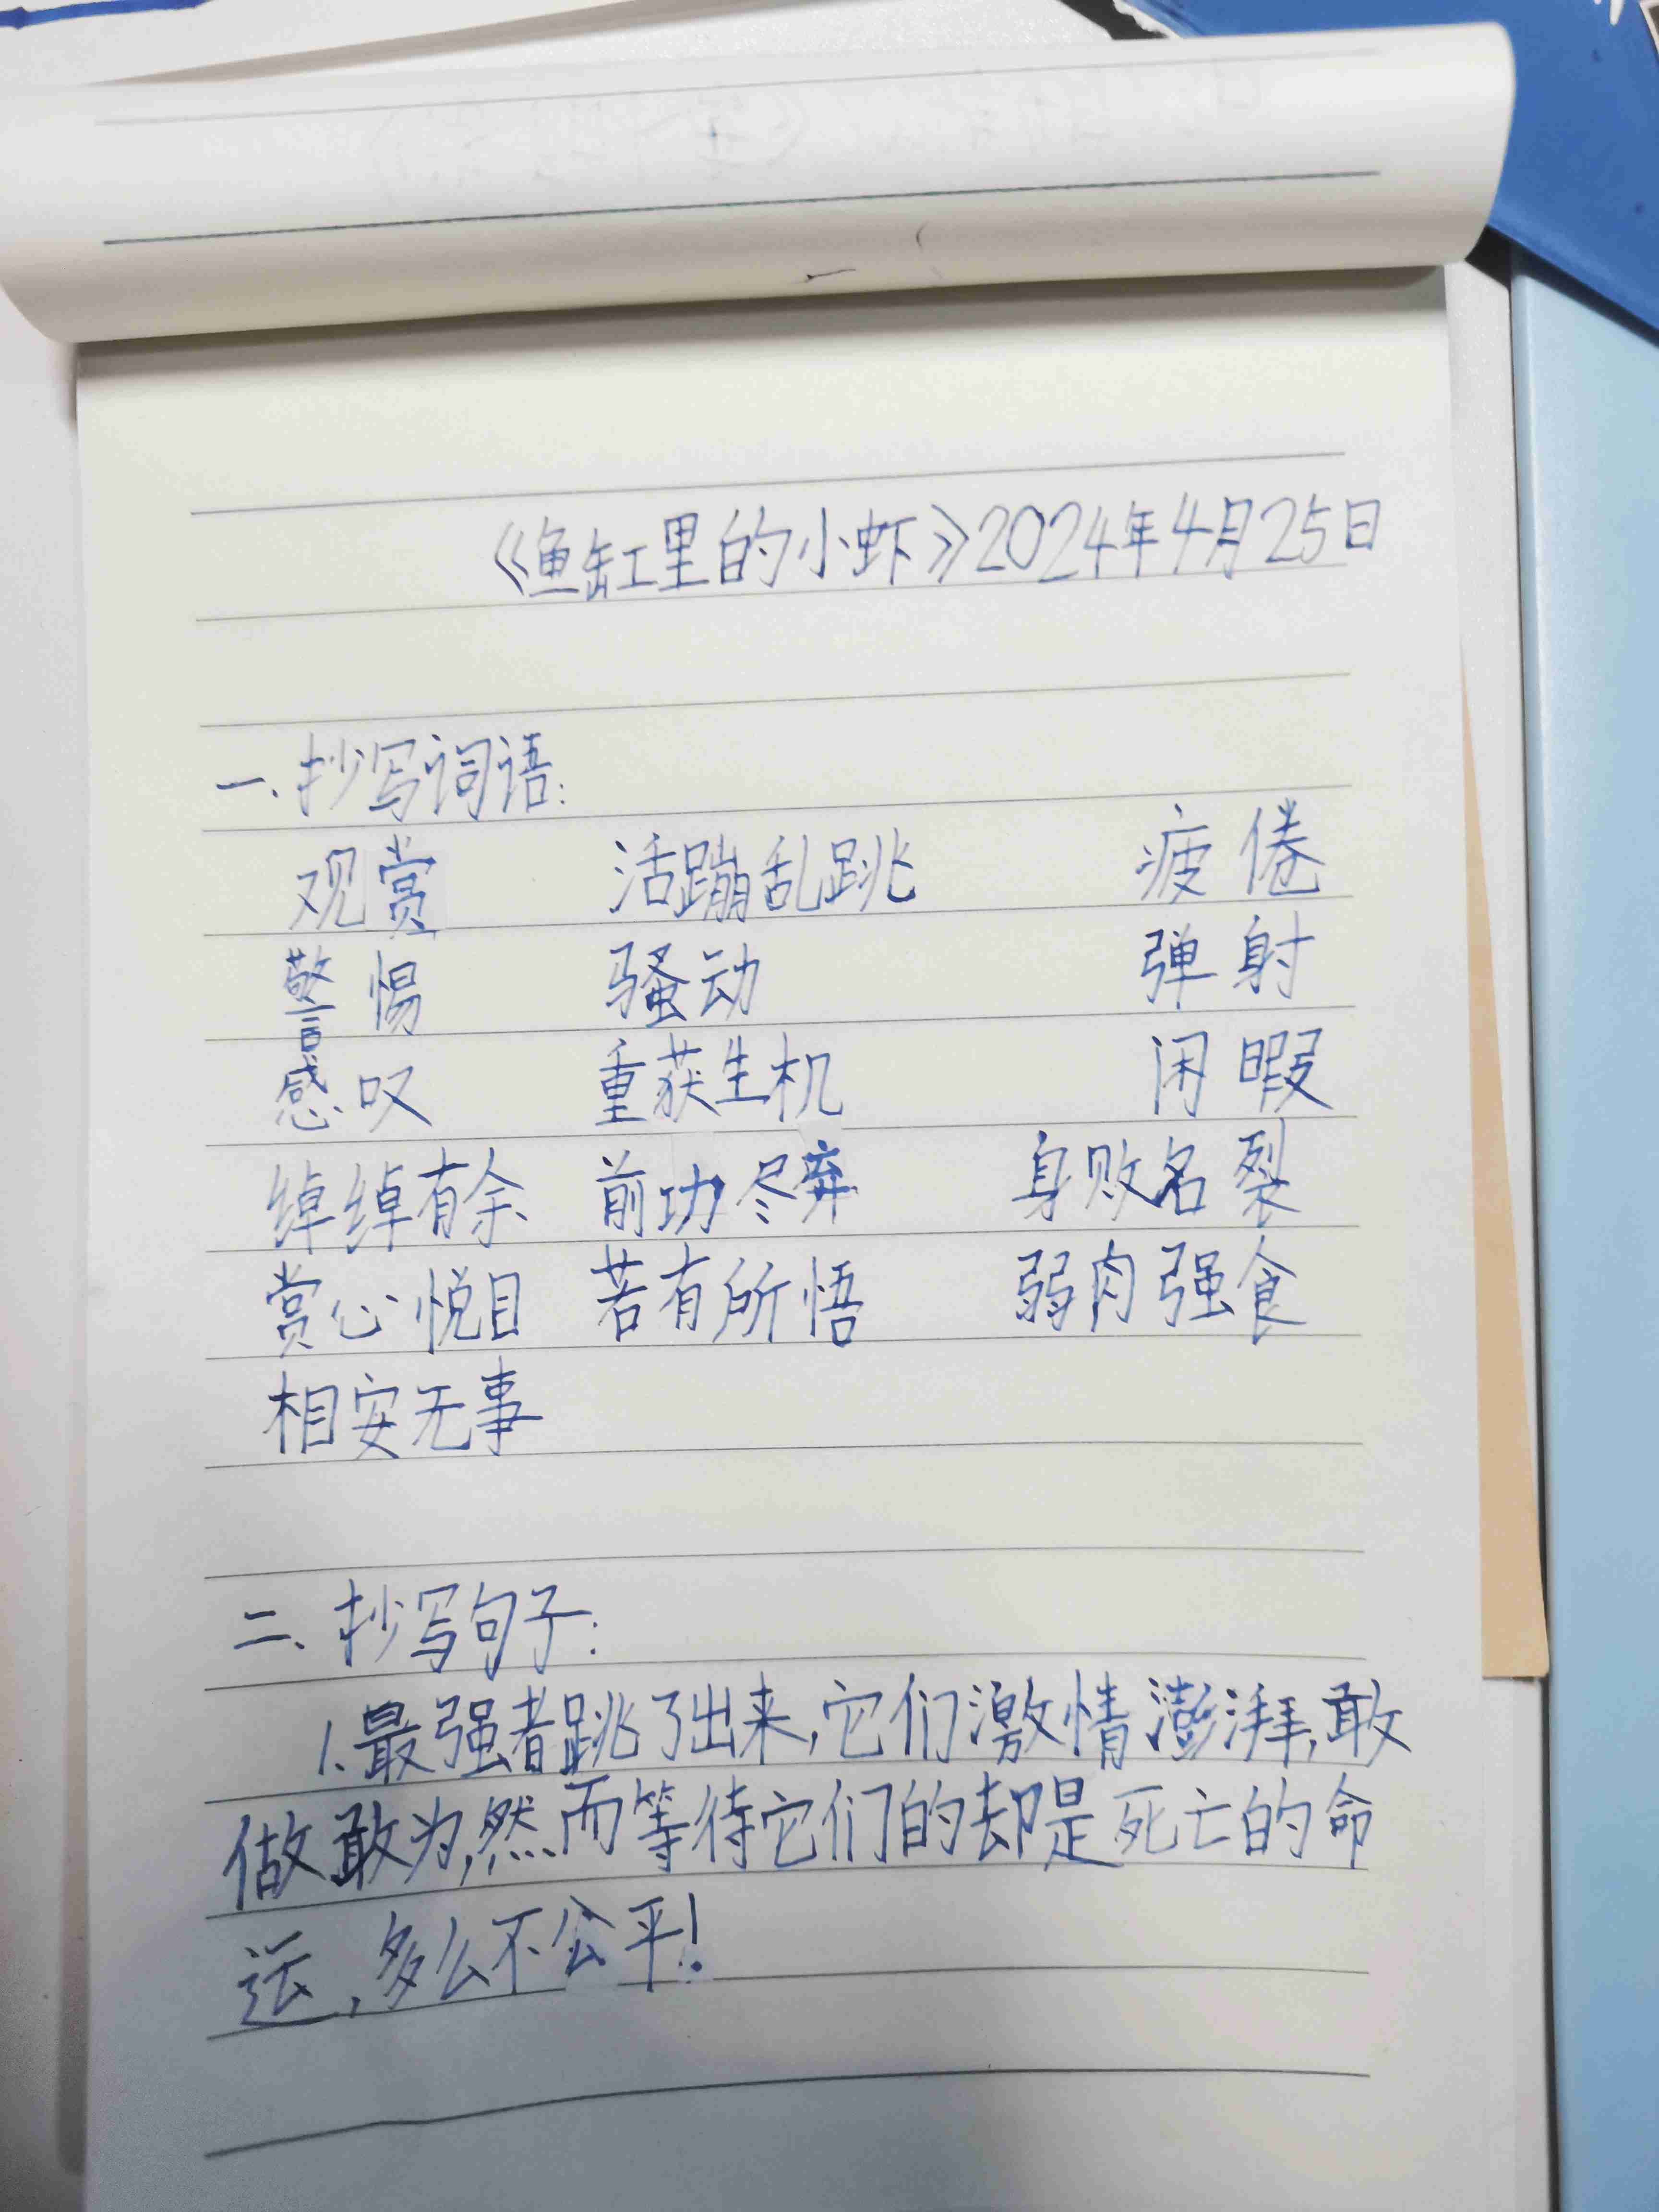 《鱼缸里的小虾》2024年4月25日
一、抄写词语:
观赏 活蹦乱跳 疲倦
警惕 骚动 弹射
感叹 重获生机 闲暇
绰绰有余 前功尽弃 身败名裂
赏心悦目 若有所悟 弱肉强食
相安无事
二、抄写句子:
1.最强者跳了出来,它们激情澎湃,敢
做敢为,然而等待它们的却是死亡的命
运,多么不公平!